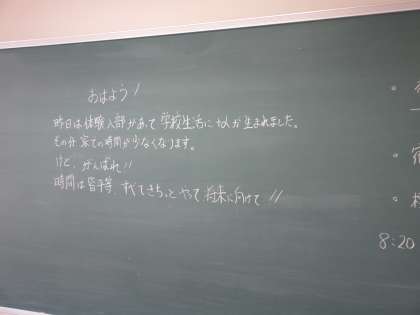 おはよう!
昨日は体験入部があって学校生活に + α が生まれました。
その分家での時間が少なくなります。
けど、がんばれ!!
時間は皆平等、すべてきちっとやって将来に向けて!!
8:20